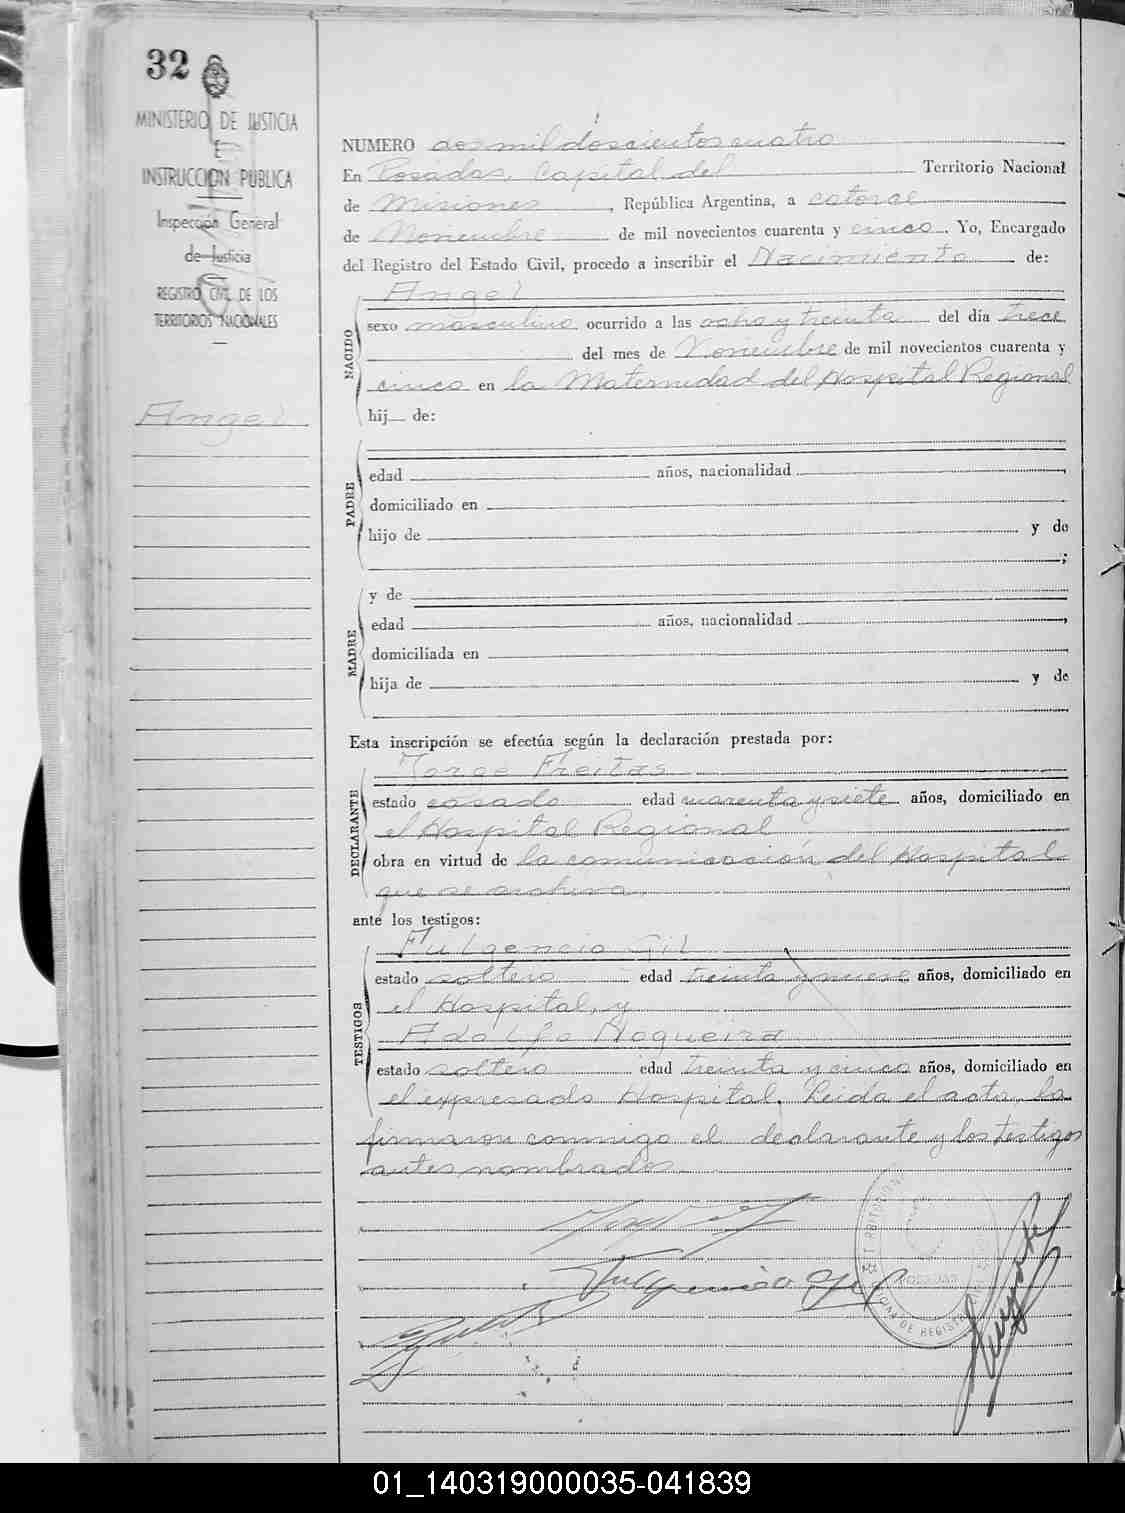 32
MINISTERIO DE JUSTICIA
E
INSTRUCCION PUBLICA
Inspección General
de Justicia
REGISTRO CIVIL DE LOS
TERRITORIOS NACIONALES
Angel
NUMERO dos mil doscientos cuatro
En Posadas, Capital del Territorio Nacional
de Misiones, República Argentina, a catorce
de Noviembre de mil novecientos cuarenta y cinco. Yo, Encargado
del Registro del Estado Civil, procedo a inscribir el Nacimiento de:
NACIDO
Angel
sexo masculino ocurrido a las ocho y treinta del día trece
del mes de Noviembre de mil novecientos cuarenta y
cinco en la Maternidad del Hospital Regional
hij de:
PADRE
edad años, nacionalidad ,
domiciliado en
hijo de y de
;
MADRE
y de
edad años, nacionalidad ,
domiciliada en
hija de y de
Esta inscripción se efectúa según la declaración prestada por:
DECLARANTE
Jorge Freitas
estado casado edad cuarenta y siete años, domiciliado en
el Hospital Regional
obra en virtud de la comunicación del Hospital
que se archiva.
ante los testigos:
TESTIGOS
Fulgencio Gil
estado soltero edad treinta y nueve años, domiciliado en
el Hospital, y
Adolfo Nogueira
estado soltero edad treinta y cinco años, domiciliado en
el expresado Hospital. Leida el acta, la
firmaron conmigo el declarante y los testigos
antes nombrados.
Fulgencio Gil
01_140319000035-041839